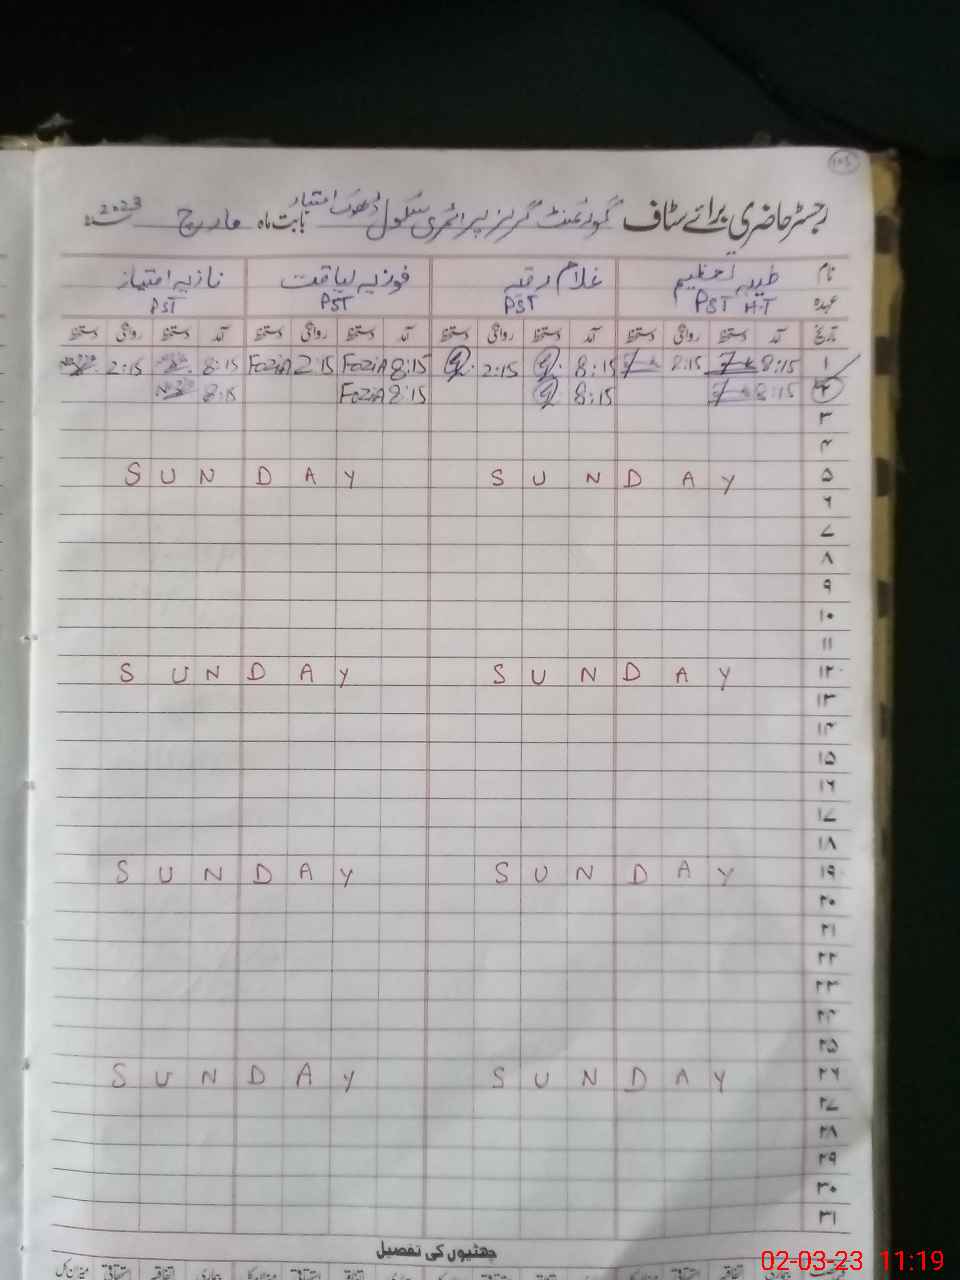 ۱۰۵
رجسٹر حاضری برائے سٹاف گورنمنٹ گرلز پرائمری سکول ڈھوک امتیاز بابت ماہ مارچ 2023
نام طیبہ عظیم غلام رقیہ فوزیہ لیاقت نازیہ امتیاز
عہدہ PST H.T PST PST PST
تاریخ آمد دستخط روانگی دستخط آمد دستخط روانگی دستخط آمد دستخط روانگی دستخط آمد دستخط روانگی دستخط
۱ 8:15 8:15 8:15 2:15 8:15 FoziA 2:15 FoziA 8:15 2:15
۲ 8:15 8:15 8:15 FoziA 8:15
۳
۴
۵ SUNDAY SUNDAY
۶
۷
۸
۹
۱۰
۱۱
۱۲ SUNDAY SUNDAY
۱۳
۱۴
۱۵
۱۶
۱۷
۱۸
۱۹ SUNDAY SUNDAY
۲۰
۲۱
۲۲
۲۳
۲۴
۲۵
۲۶ SUNDAY SUNDAY
۲۷
۲۸
۲۹
۳۰
۳۱
چھٹیوں کی تفصیل
02-03-23 11:19